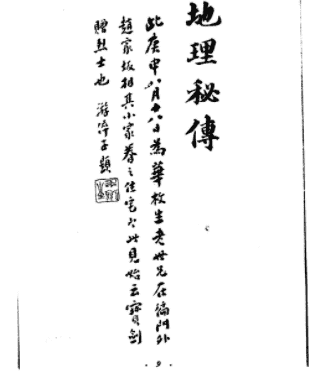 地理秘傳
此庚申八月十八日為華放生老世兄在偏門外
趙家坂相其小家眷之住宅於此見始云寶劍
贈烈士也 游存子題